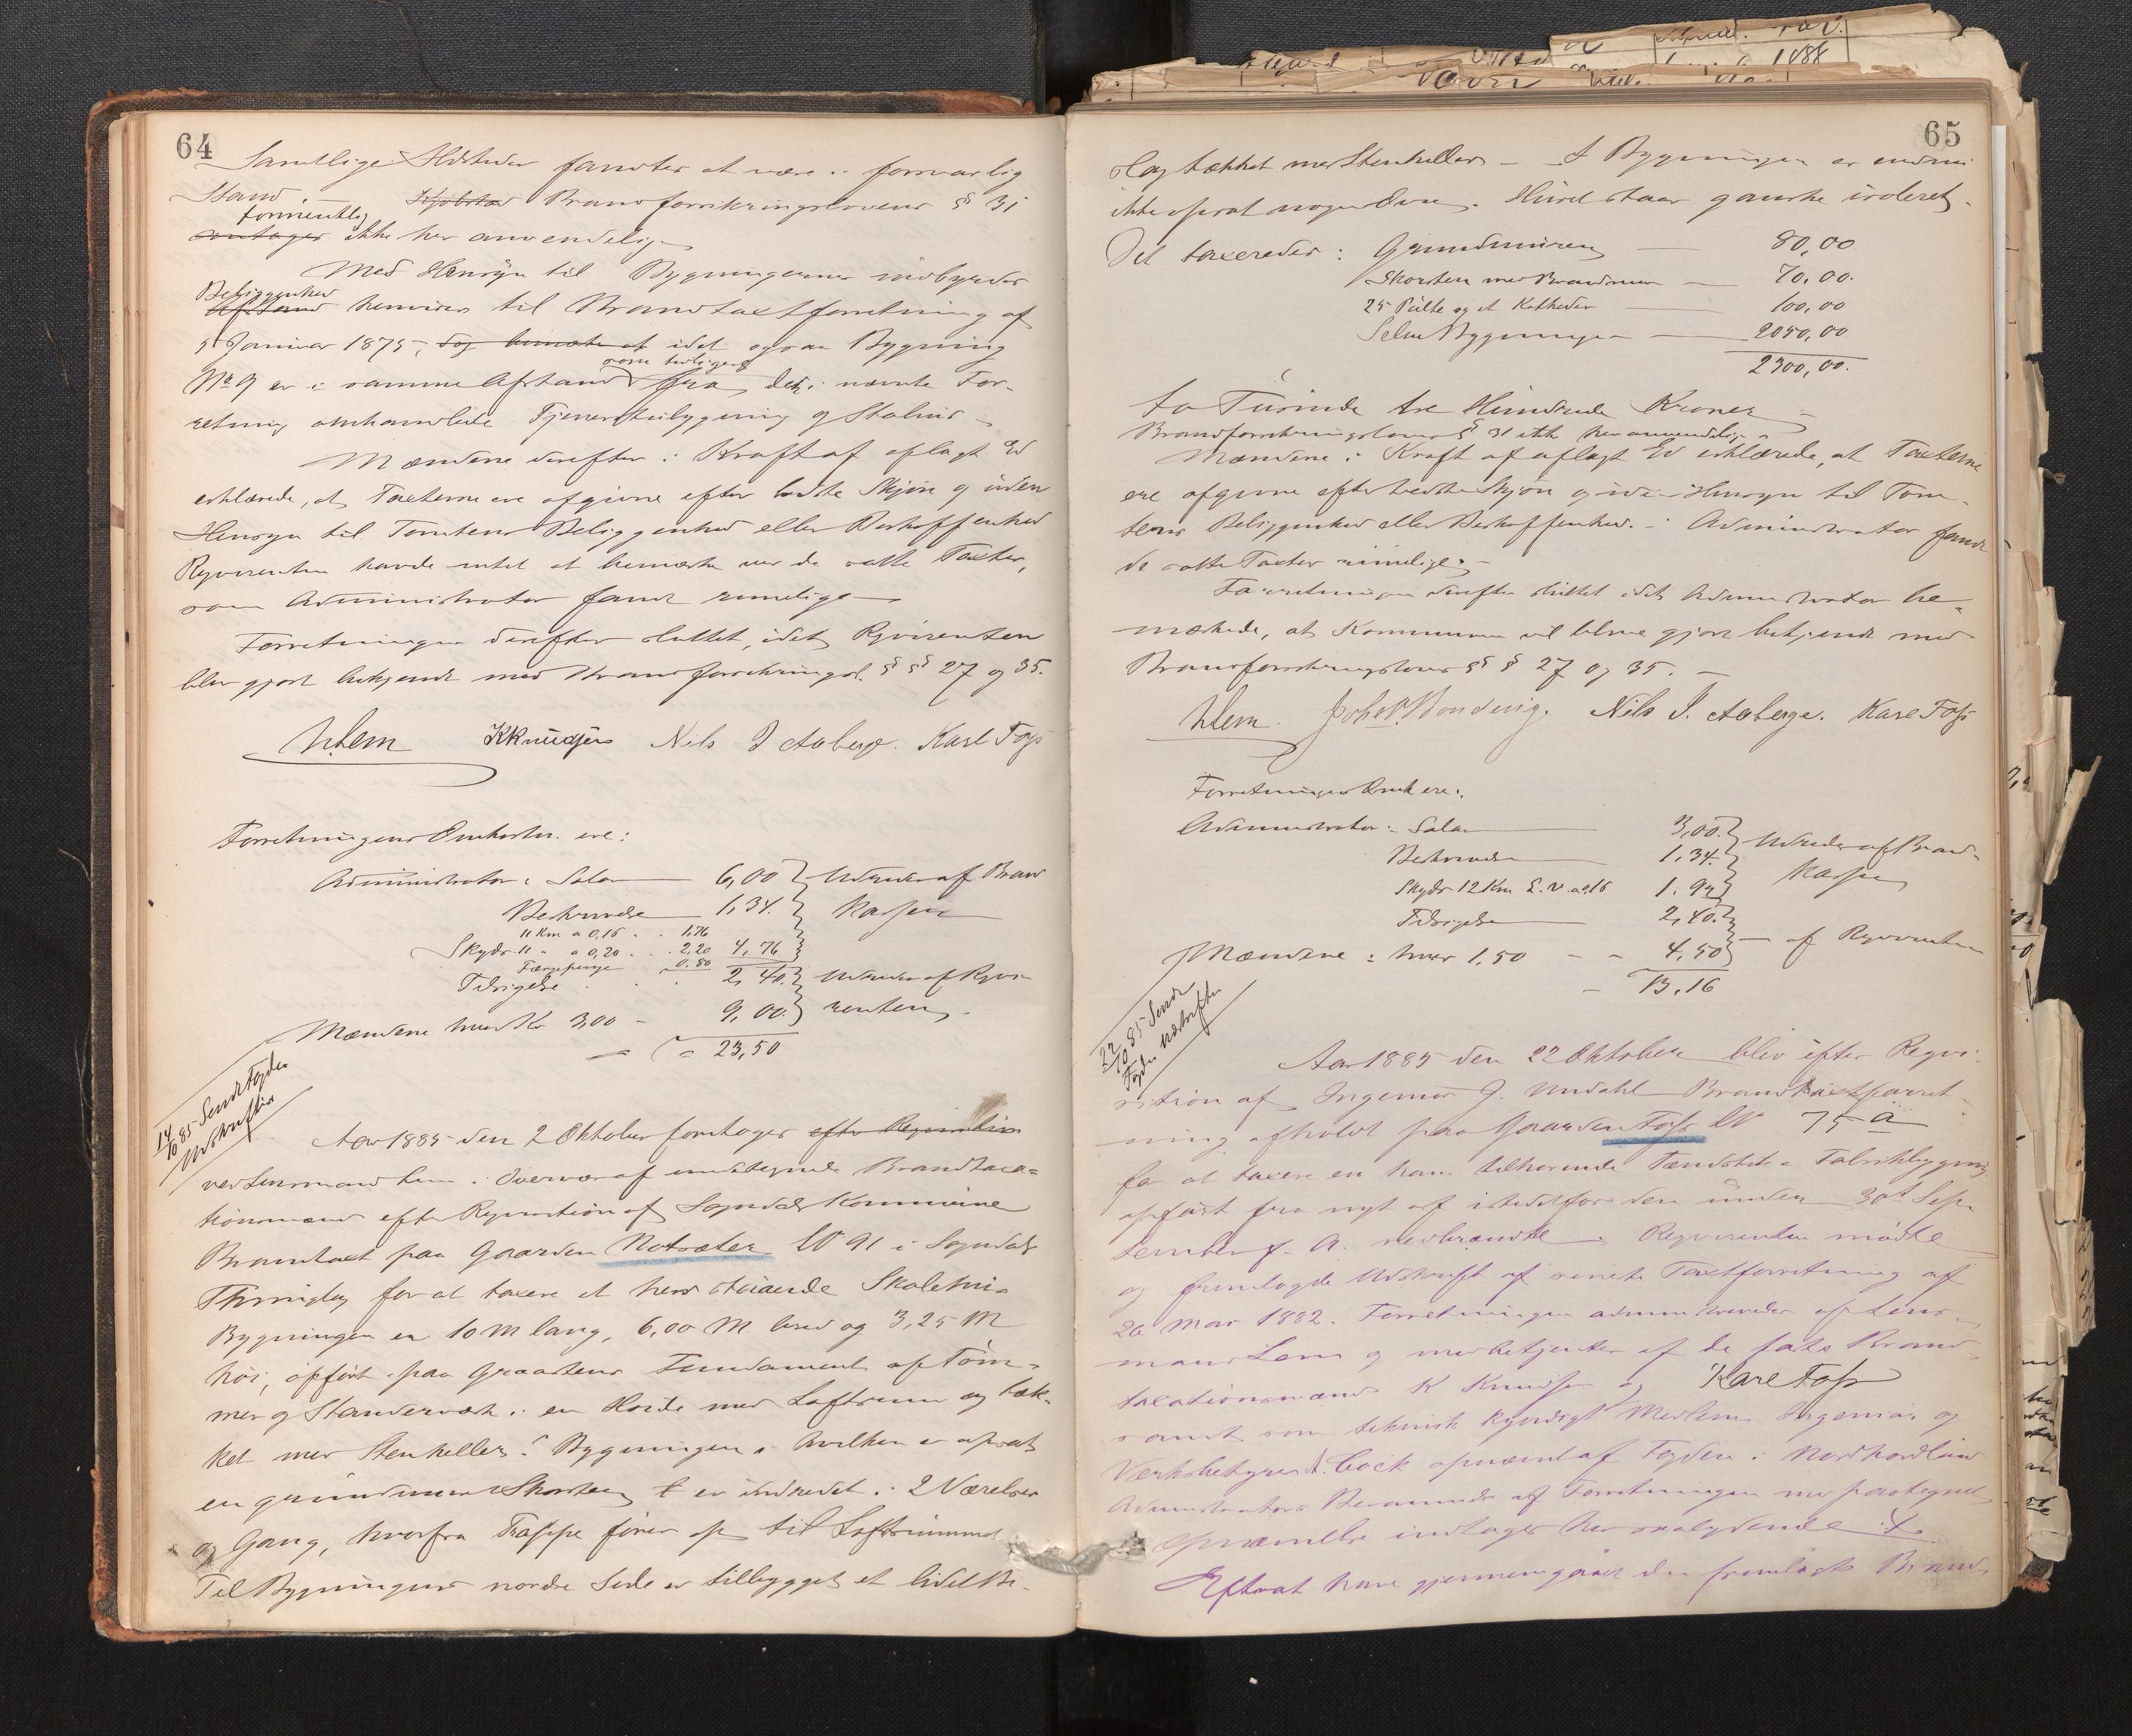 64
Samtlige Ildsteder fandtes at være i forsvarlig
Stand. Kjøbstad Brandforsikringslovens § 31
formentlig
antages ikke her anvendelig
Med Hensyn til Bygningernes indbyrdes
Beliggenhed
Afstand henvises til Brandtaxtforretning af
5 Januar 1875, dog bemærkes at idet ogsaa Bygning
som tidligere
No 9 er i samme Afstand fra den i nævnte For-
retning omhandlede Fjøsbygning og Staldhus
Mændene derefter i Kraft af aflagt Ed
erklærede, at Taxterne ere afgivne efter bedste Skjøn og uden
Hensyn til Tomtens Beliggenhed eller Beskaffenhed
Rqvirenten havde intet at bemærke ved de satte Taxter,
som Administrator fandt rimelige
Forretningen derefter sluttet, idet Rqvirenten
blev gjort bekjendt med Brandforsikringsl. §§ 27 og 35.
Lem KKnudsen Nils J Aaberge. Karl Foss
Forretningens Omkostn. ere:
Administrator: Salær 6,00 } Udredes af Brand
Beskrivelse 1,34. } Kassen
11 Km a 0,16 . . 1,76
Skyds 11 " a 0,20 . . . 2,20 4,76 }
Færgepenge 0,80
Tilsigelse . . . 2,40. } Udredes af Rqvi-
Mændene hver Kr 3,00 - 9,00. } renten.
23,50
14/10 85 Sendt Fogden
Udskrift
Aar 1885 den 2 Oktober foretoges efter Reqvisition
ved Lensmand Lem i Overvær af undertegnede Brandtaxa-
tionsmænd efter Reqvisition af Sogndals Kommune
Brandtaxt paa Gaarden Notsæter LN 91 i Sogndals
Thinglag for at taxere et hers staaende Skolehus
Bygningen er 10 M lang, 6,00 M bred og 3,25 M
høi, opført paa Graastens Fundament af Tøm-
mer og Standerværk i en Høide med Loftsrum og tæk-
ket med Stenheller. Bygningen i hvilken er opsat
en grundmuret Skorsten er indredet i 2 Værelser
og Gang, hvorfra Trappe fører op til Loftsrummet
Til Bygningens nordre Side er tilbygget et lidet Bi-
65
slag tækket med Stenheller - I Bygningen er endnu
ikke opsat nogen Ovn. Huset staar ganske isoleret.
Det taxeredes: Grundmuren 80,00
Skorsten med Brandmur 70,00.
25 Pulte og et Katheder 100,00
Selve Bygningen 2050,00
2300,00.
to Tusinde tre Hundrede Kroner
Brandforsikringslovens § 31 ikke her anvendelig
Mændene i Kraft af aflagt Ed erklærede, at Taxterne
ere afgivne efter bedste Skjøn og uden Hensyn til Tom-
tens Beliggenhed eller Beskaffenhed. - Administrator fandt
de satte Taxter rimelige.
Forretningen derefter sluttet idet Administrator be-
mærkede, at Kommunen vil blive gjort bekjendt med
Brandforsikringslovens §§ 27 og 35.
Lem. Nils J. Aaberge. Karl Foss
Forretningens Omk ere:
Administrator: Salær 3,00. } Udredes af Brand-
Beskrivelse 1,34. } Kassen
Skyds 12 Km L. V. a 0,16 1.92 }
Tilsigelse 2,40. }
Mændene: hver 1,50 - - 4,50 } - af Rqvirenten
13,16
22/10 85 Sendt
Fogden Udskrifter
Aar 1885 den 22 Oktober blev efter Reqvi-
sition af Ingemar J. Undahl Brandtaxtforret-
ning afholdt paa Gaarden Foss LN 75 a
for at taxere en ham tilhørende Tændstik-Fabrikbygning
opført fra nyt af istedetfor den under 30t Sep-
tember f. A. nedbrændte. Reqvirenten mødte
og fremlagde Udskrift af seneste Taxtforretning af
20 Mai 1882. Forretningen administreredes af Lens-
mand Lem og medbetjentes af de faste Brand-
taxationsmænd K Knudsen og Karl Foss
samt som teknisk kyndigt Medlem Ingeniør og
Værksbestyrer Cock opnævnt af Fogden i Nordhordland
Administrators Berammelse af Forretningen med paategnet
Opnævnelse indtages her saalydende
Efterat have gjennemgaaet den fremlagte Brand-